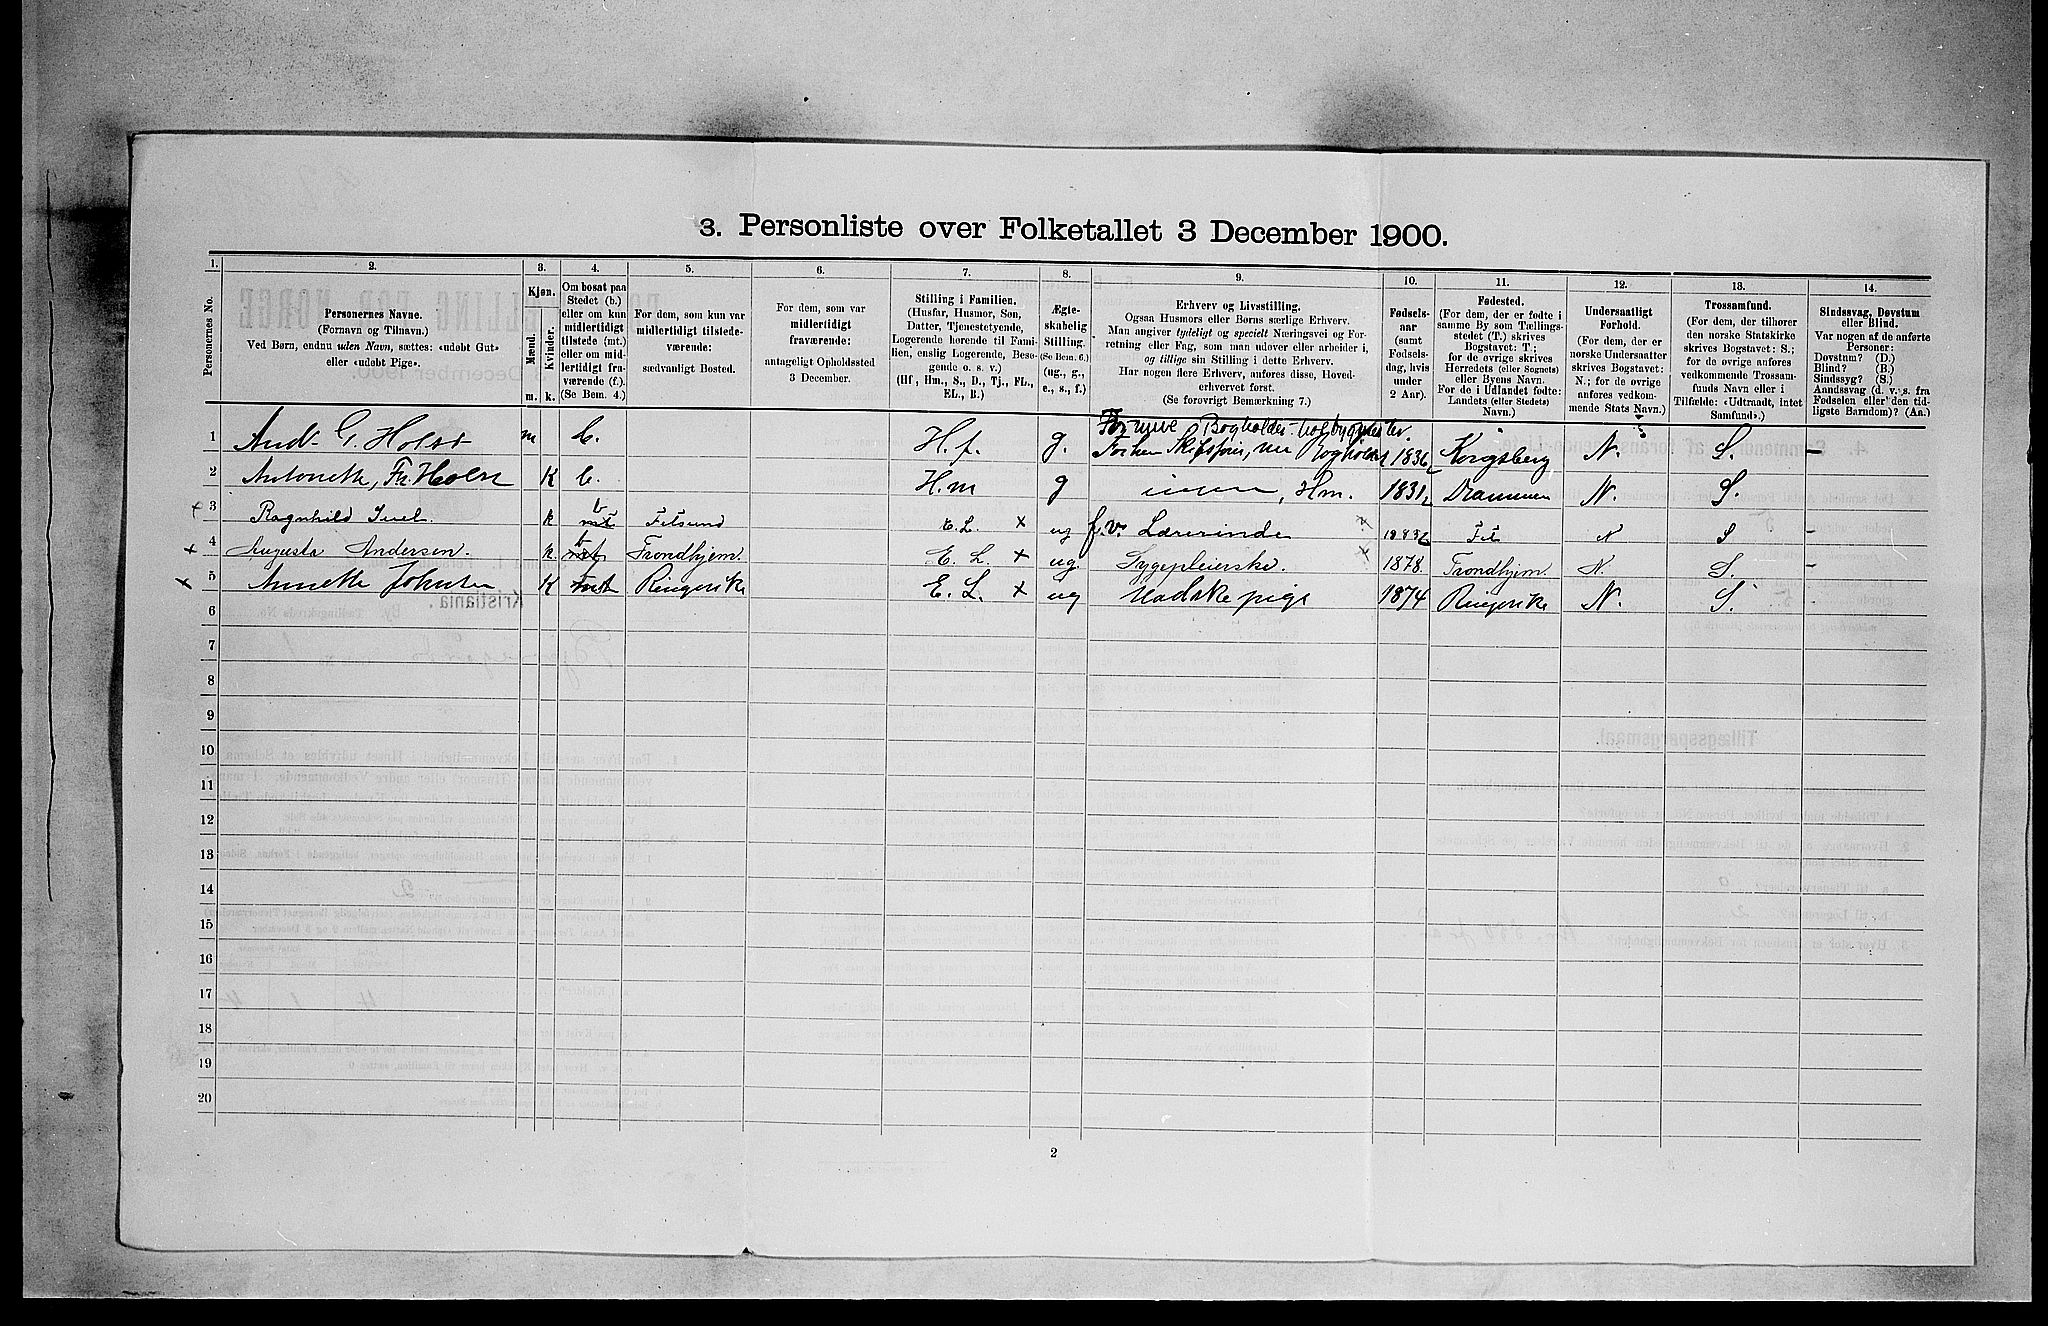 3. Personliste over Folketallet 3 December 1900.
1. 2. 3. 4. 5. 6. 7. 8. 9. 10. 11. 12. 13. 14.
Personernes No.
Personernes Navne.
(Fornavn og Tilnavn.)
Ved Børn, endnu uden Navn, sættes: «udøbt Gut»
eller «udøbt Pige».
Kjøn.
Mænd. Kvinder.
m. k.
Om bosat paa
Stedet (b.)
eller om kun
midlertidigt
tilstede (mt.)
eller om mid-
lertidigt fra-
værende (f.).
(Se Bem. 4.)
For dem, som kun var
midlertidigt tilstede-
værende:
sædvanligt Bosted.
For dem, som var
midlertidigt
fraværende:
antageligt Opholdssted
3 December.
Stilling i Familien.
(Husfar, Husmor, Søn,
Datter, Tjenestetyende,
Logerende hørende til Fami-
lien, enslig Logerende, Besø-
gende o. s. v.)
(Hf, Hm., S., D., Tj., FL.,
EL., B.)
Ægte-
skabelig
Stilling.
(Se Bem. 6.)
(ug., g.,
e., s., f.)
Erhverv og Livsstilling.
Ogsaa Husmors eller Børns særlige Erhverv.
Man angiver tydeligt og specielt Næringsvei og For-
retning eller Fag, som man udøver eller arbeider i,
og tillige sin Stilling i dette Erhverv.
Har nogen flere Erhverv, anføres disse, Hoved-
erhvervet først.
(Se forøvrigt Bemærkning 7.)
Fødsels-
aar
(samt
Fødsels-
dag, hvis
under
2 Aar).
Fødested.
(For dem, der er fødte i
samme By som Tællings-
stedet (T.) skrives
Bogstavet: T.;
for de øvrige skrives
Herredets (eller Sognets)
eller Byens Navn.
For de i Udlandet fødte:
Landets (eller Stedets)
Navn.)
Undersaatligt
Forhold.
(For dem, der er
norske Undersaatter
skrives Bogstavet:
N.; for de øvrige
anføres vedkom-
mende Stats Navn.)
Trossamfund.
(For dem, der tilhører
den norske Statskirke
skrives Bogstavet: S.;
for de øvrige anføres
vedkommende Trossam-
funds Navn eller i
Tilfælde: «Udtraadt, intet
Samfund».)
Sindssvag, Døvstum
eller Blind.
Var nogen af de anførte
Personer:
Døvstum? (D.)
Blind? (B.)
Sindssyg? (S.)
Aandssvag (d. v. s. fra
Fødselen eller den tid-
ligste Barndom)? (Aa.)
1 And. G. Holst m b. H.f. g. Bogholder 1836 Kongsberg N. S. –
2 Antonette, Fr. Holst K b. H.m g Hm. 1831 Drammen N. S.
3 Ragnhild Juel. k b mt Fetsund E.L. × ug f.v. Lærerinde Fet N S –
4 Augusta Andersen. k. b mt Trondhjem. E. L. × ug. Sygepleierske. 1878. Trondhjem. N. S. –
5 Annette Johnsen K mt Ringerike E. L. × ug 1874 Ringerike N. S. –
6
7
8
9
10
11
12
13
14
15
16
17
18
19
20
2